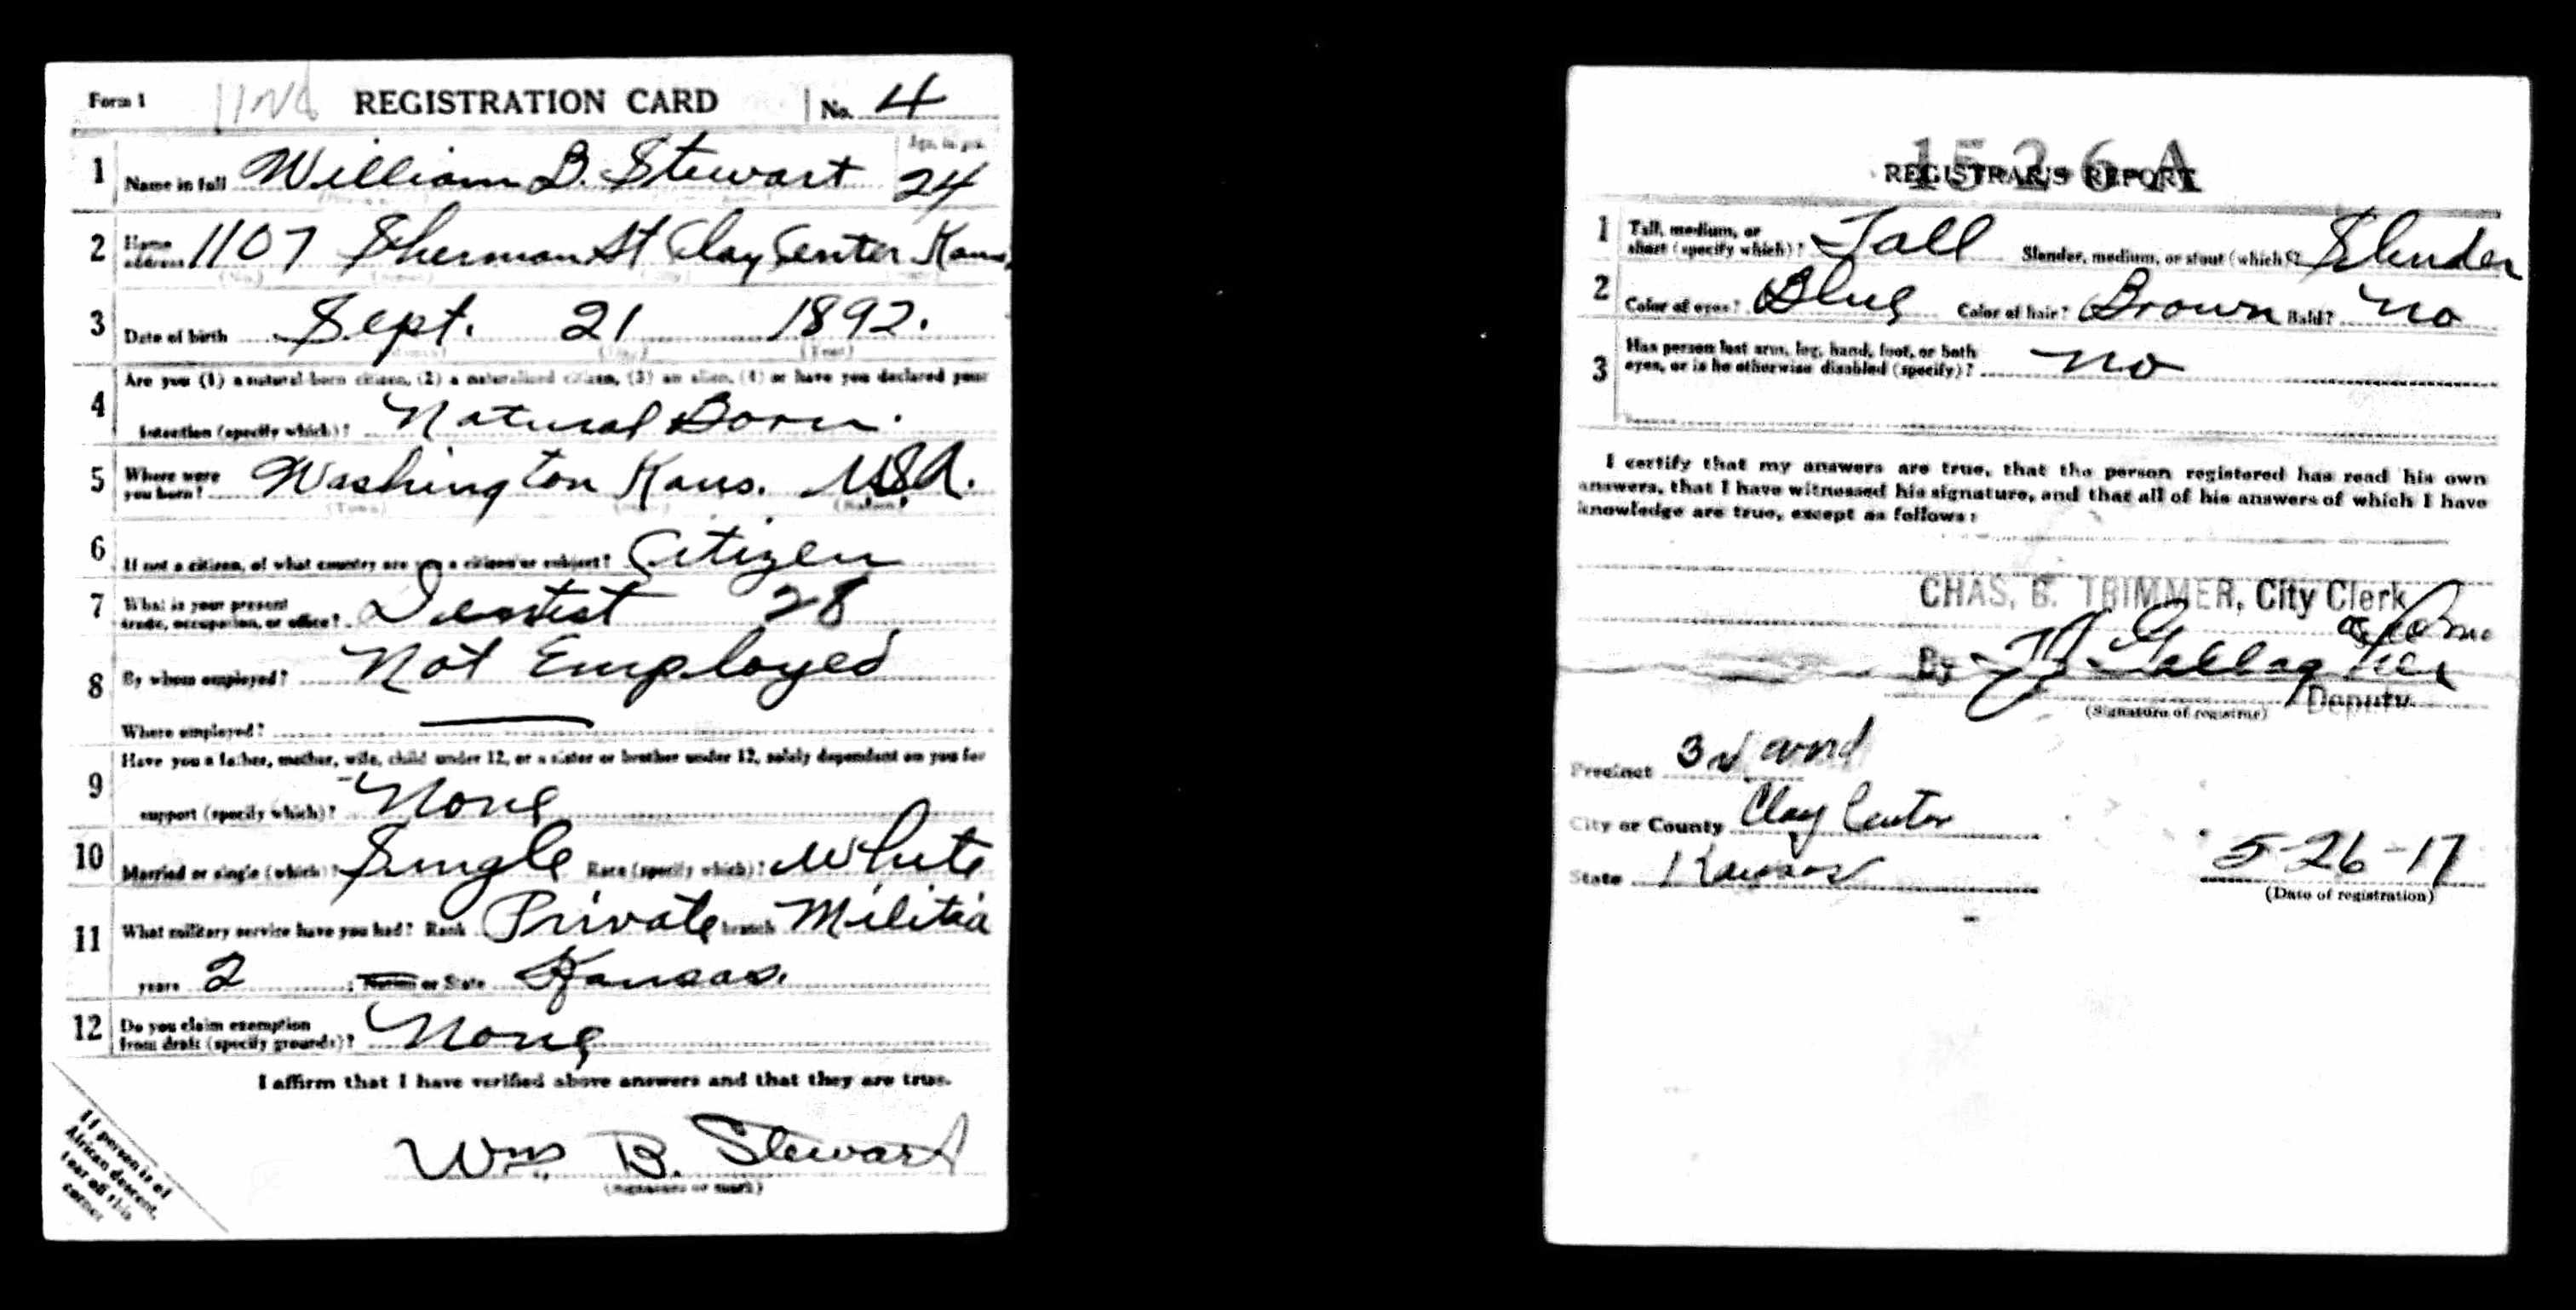 Form 1 REGISTRATION CARD No. 4
1 Name in full William B. Stewart Age, in yrs. 24
2 Home address 1107 Sherman St Clay Center Kans.
3 Date of birth Sept. 21 1892.
(Month) (Day) (Year)
Are you (1) a natural-born citizen, (2) a naturalized citizen, (3) an alien, (4) or have you declared your
4 intention (specify which)? Natural Born.
5 Where were you born? Washington Kans. USA.
(Town) (State) (Nation)
6 If not a citizen, of what country are you a citizen or subject? Citizen
7 What is your present trade, occupation, or office? Dentist 28
8 By whom employed? Not Employed
Where employed? ———
Have you a father, mother, wife, child under 12, or a sister or brother under 12, solely dependent on you for
9 support (specify which)? None
10 Married or single (which)? Single Race (specify which)? White
11 What military service have you had? Rank Private branch Militia
years 2 ; Nation or State Kansas.
12 Do you claim exemption from draft (specify grounds)? None
I affirm that I have verified above answers and that they are true.
Wm B. Stewart
(Signature or mark)
If person is of
African descent,
tear off this
corner
15-2-6-A
REGISTRAR'S REPORT
1 Tall, medium, or short (specify which)? Tall Slender, medium, or stout (which)? Slender
2 Color of eyes? Blue Color of hair? Brown Bald? No
3 Has person lost arm, leg, hand, foot, or both eyes, or is he otherwise disabled (specify)? No
I certify that my answers are true, that the person registered has read his own
answers, that I have witnessed his signature, and that all of his answers of which I have
knowledge are true, except as follows:
CHAS. B. TRIMMER, City Clerk
By Gallagher
Deputy
(Signature of registrar)
Precinct 3rd ward
City or County Clay Center
State Kansas
5-26-17
(Date of registration)